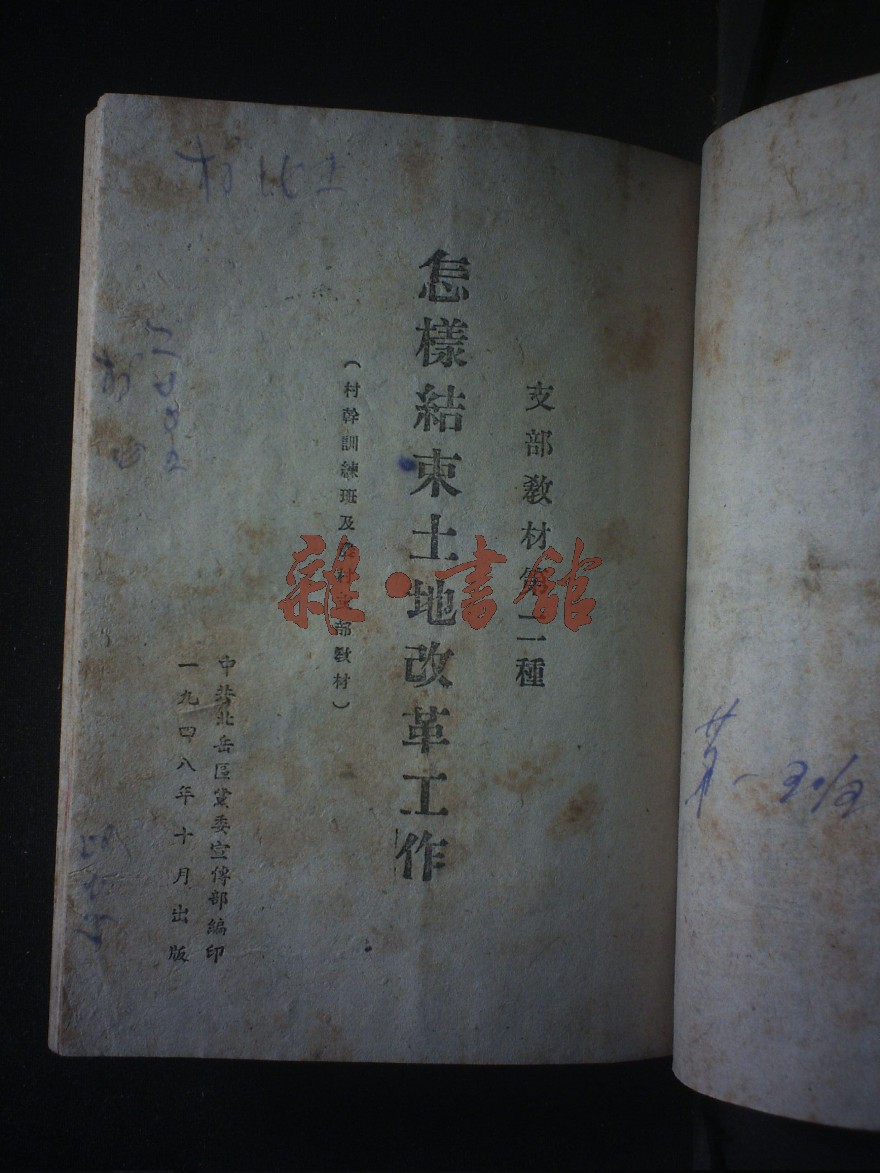 支部敎材第二種
怎樣結束土地改革工作
（村幹訓練班及農村支部敎材）
中共北岳區黨委宣傳部編印
一九四八年十月出版
雜·書館